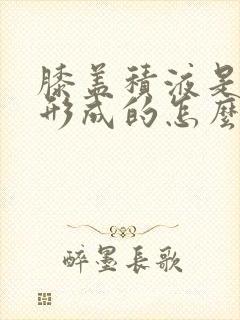 膝盖積液是
形成的怎麽
醉墨長歌